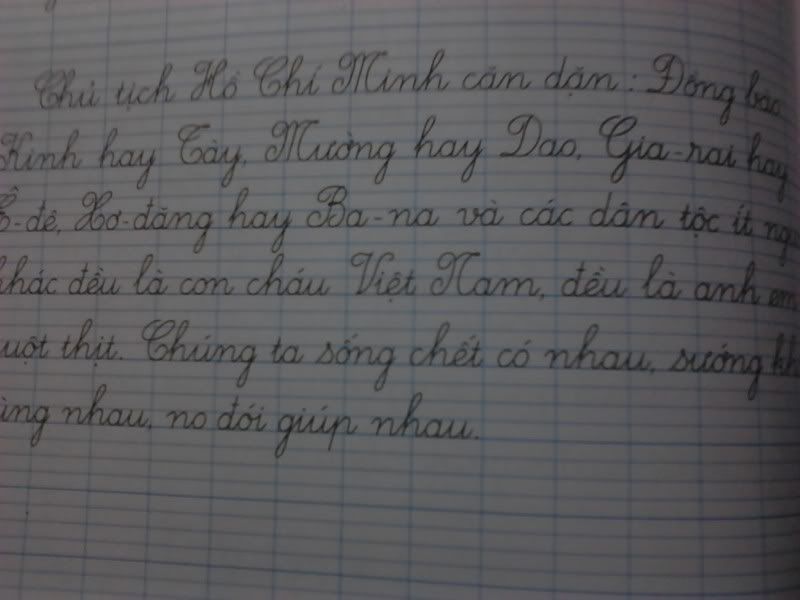 Chủ tịch Hồ Chí Minh căn dặn: Đồng bào
Kinh hay Tày, Mường hay Dao, Gia-rai hay
Ê-đê, Xơ-đăng hay Ba-na và các dân tộc ít
khác đều là con cháu Việt Nam, đều là anh em
ruột thịt. Chúng ta sống chết có nhau, sướng
cùng nhau, no đói giúp nhau.